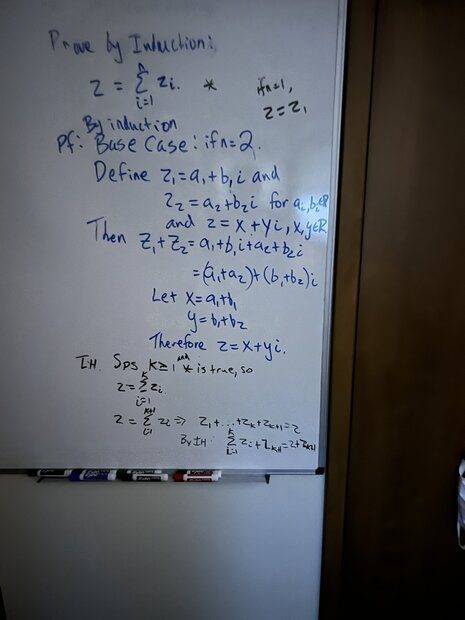 Prove by Induction:
z = n Σ i=1 zi. * if n=1,
z = z1
By induction
Pf: Base Case: if n=2.
Define z1 = a1 + b1i and
z2 = a2 + b2i for ai, bi ∈ R
and z = x + yi, x,y ∈ R
Then z1 + z2 = a1 + b1i + a2 + b2i
= (a1 + a2) + (b1 + b2)i
Let x = a1 + b1
y = b1 + b2
Therefore z = x + yi.
I.H. Sps k ≥ 1 and * is true, so
z = k Σ i=1 zi.
z = k+1 Σ i=1 zi => z1 + ... + zk + zk+1 = z
By IH: k Σ i=1 zi + zk+1 = z + zk+1